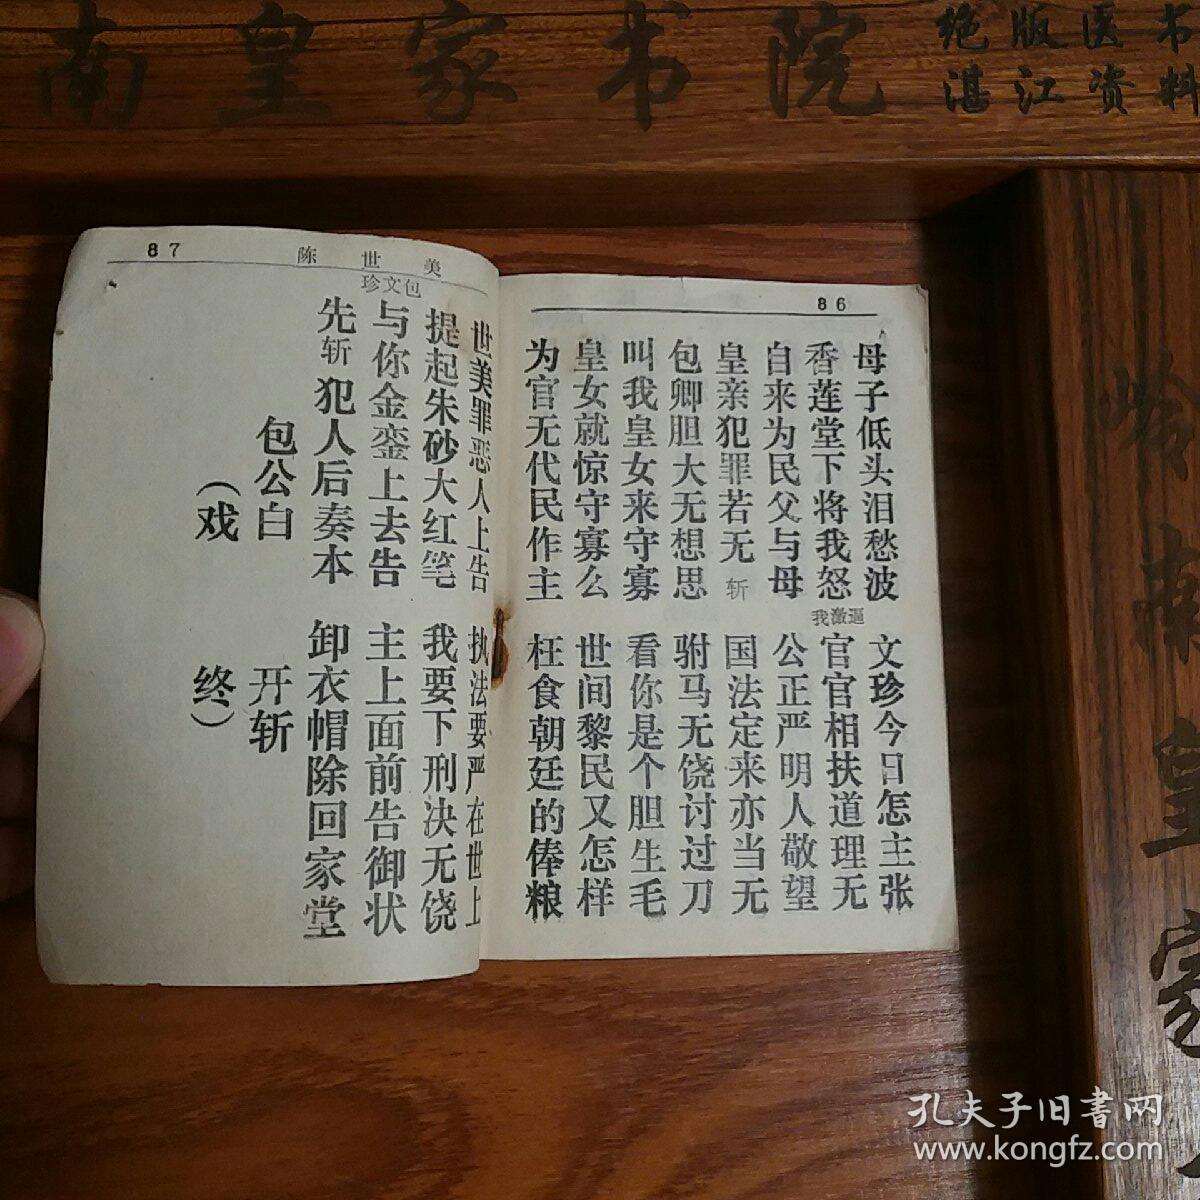 南皇家书院
绝版医书
湛江资料
岭南皇家
86
母子低头泪愁波 文珍今日怎主张
香莲堂下将我怒 官官相扶道理无
我激逼
自来为民父与母 公正严明人敬望
皇亲犯罪若无斩 国法定来亦当无
包卿胆大无想思 驸马无饶讨过刀
叫我皇女来守寡 看你是个胆生毛
皇女就惊守寡么 世间黎民又怎样
为官无代民作主 枉食朝廷的俸粮
87 陈世美
包文珍
世美罪恶人上告 执法要严在世上
提起朱砂大红笔 我要下刑决无饶
与你金銮上去告 主上面前告御状
先斩犯人后奏本 卸衣帽除回家堂
包公白 开斩
（戏 终）
孔夫子旧書网
www.kongfz.com